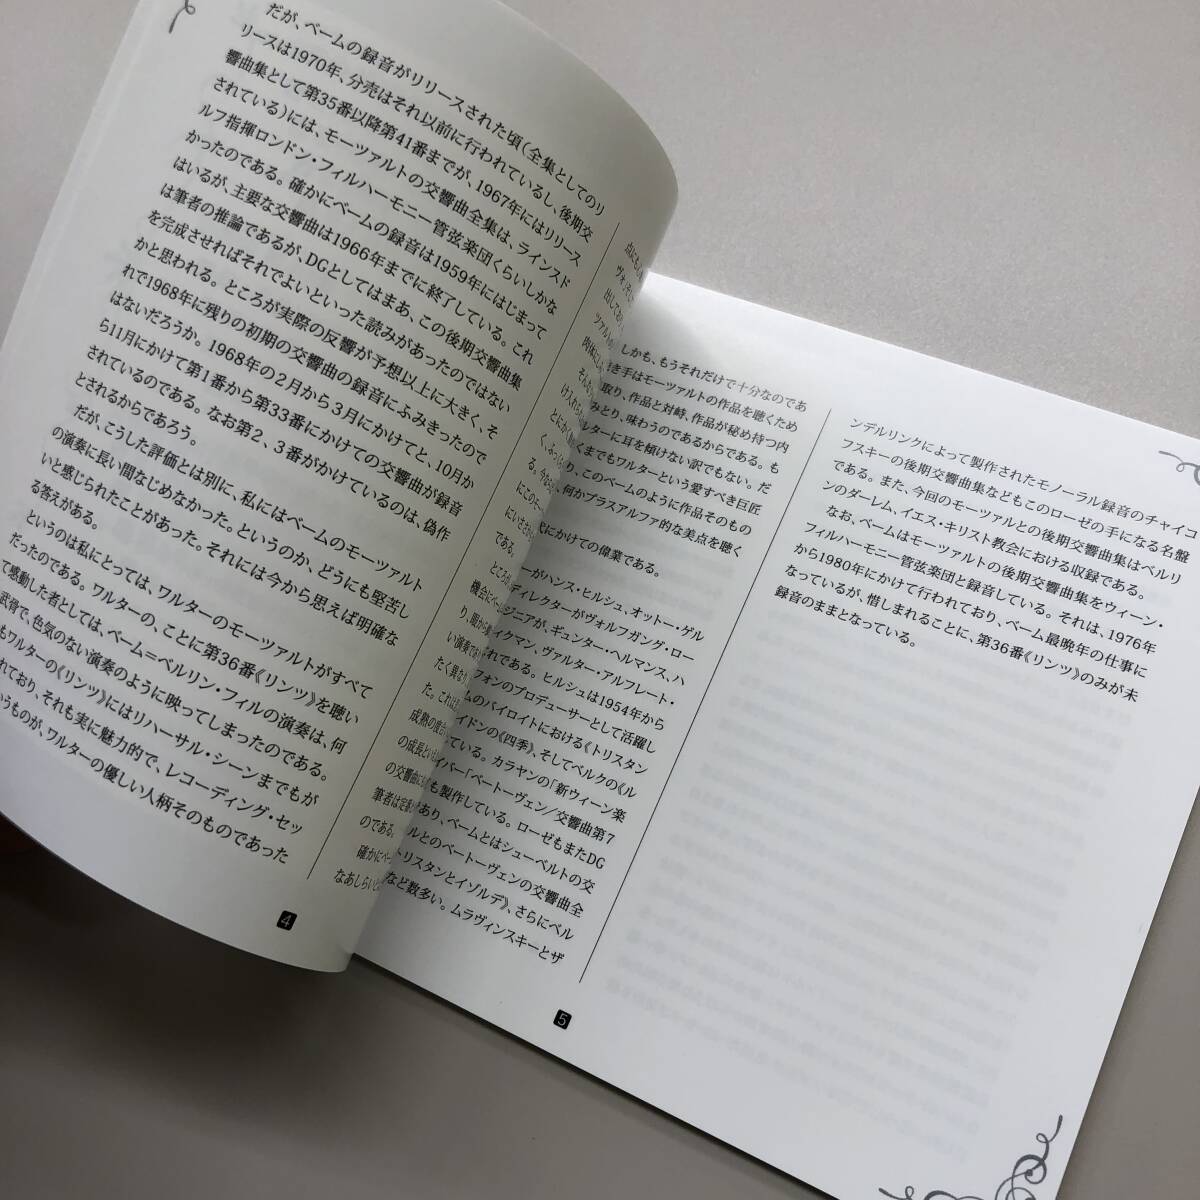 だが、ベームの録音がリリースされた頃(全集としてのリ
リースは1970年、分売はそれ以前に行われているし、後期交
響曲集として第35番以降第41番までが、1967年にはリリース
されている)には、モーツァルトの交響曲全集は、ラインスド
ルフ指揮ロンドン・フィルハーモニー管弦楽団くらいしかな
かったのである。確かにベームの録音は1959年にはじまって
はいるが、主要な交響曲は1966年までに終了している。これ
は筆者の推論であるが、DGとしてはまあ、この後期交響曲集
を完成させればそれでよいといった読みがあったのではない
かと思われる。ところが実際の反響が予想以上に大きく、そ
れで1968年に残りの初期の交響曲の録音にふみきったので
はないだろうか。1968年の2月から3月にかけてと、10月か
ら11月にかけて第1番から第33番にかけての交響曲が録音
されているのである。なお第2、3番がかけているのは、偽作
とされるからであろう。
だが、こうした評価とは別に、私にはベームのモーツァルト
の演奏に長い間なじめなかった。というのか、どうにも堅苦し
いと感じられたことがあった。それには今から思えば明確な
る答えがある。
というのは私にとっては、ワルターのモーツァルトがすべて
だったのである。ワルターの、ことに第36番《リンツ》を聴い
て感動した者としては、ベーム=ベルリン・フィルの演奏は、何
武骨で、色気のない演奏のように映ってしまったのである。
もワルターの《リンツ》にはリハーサル・シーンまでもが
れており、それも実に魅力的で、レコーディング・セッ
いうものが、ワルターの優しい人柄そのものであった
4
しかも、もうそれだけで十分なのであ
き手はモーツァルトの作品を聴くため
取り、作品と対峙、作品が秘め持つ内
みとり、味わうのであるからである。も
ルターに耳を傾けない訳でもない。だ
くまでもワルターという愛すべき巨匠
り、このベームのように作品そのもの
何かプラスアルファ的な美点を聴く
にかけての偉業である。
ーがハンス・ヒルシュ、オットー・ゲル
ディレクターがヴォルフガング・ロー
ジニアが、ギュンター・ヘルマンス、ハ
イクマン、ヴァルター・アルフレート・
れである。ヒルシュは1954年から
フォンのプロデューサーとして活躍し
ムのバイロイトにおける《トリスタン
イドンの《四季》、そしてベルクの《ル
ている。カラヤンの「新ウィーン楽
イバー「ベートーヴェン/交響曲第7
も製作している。ローゼもまたDG
あり、ベームとはシューベルトの交
ルとのベートーヴェンの交響曲全
トリスタンとイゾルデ》、さらにベル
など数多い。ムラヴィンスキーとザ
ンデルリンクによって製作されたモノーラル録音のチャイコ
フスキーの後期交響曲集などもこのローゼの手になる名盤
である。また、今回のモーツァルとの後期交響曲集はベルリ
ンのダーレム、イエス・キリスト教会における収録である。
なお、ベームはモーツァルトの後期交響曲集をウィーン・
フィルハーモニー管弦楽団と録音している。それは、1976年
から1980年にかけて行われており、ベーム最晩年の仕事に
なっているが、惜しまれることに、第36番《リンツ》のみが未
録音のままとなっている。
5